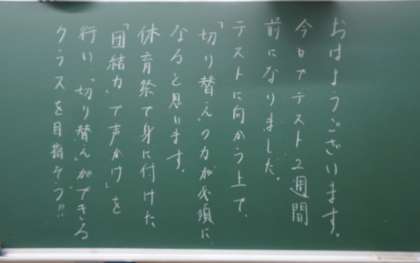 おはようございます。
今日でテスト2週間
前になりました。
テストに向かう上で、
「切り替え」の力が必須に
なると思います。
体育祭で身に付けた、
「団結力」で声かけを
行い、切り替えができる
クラスを目指そう!!